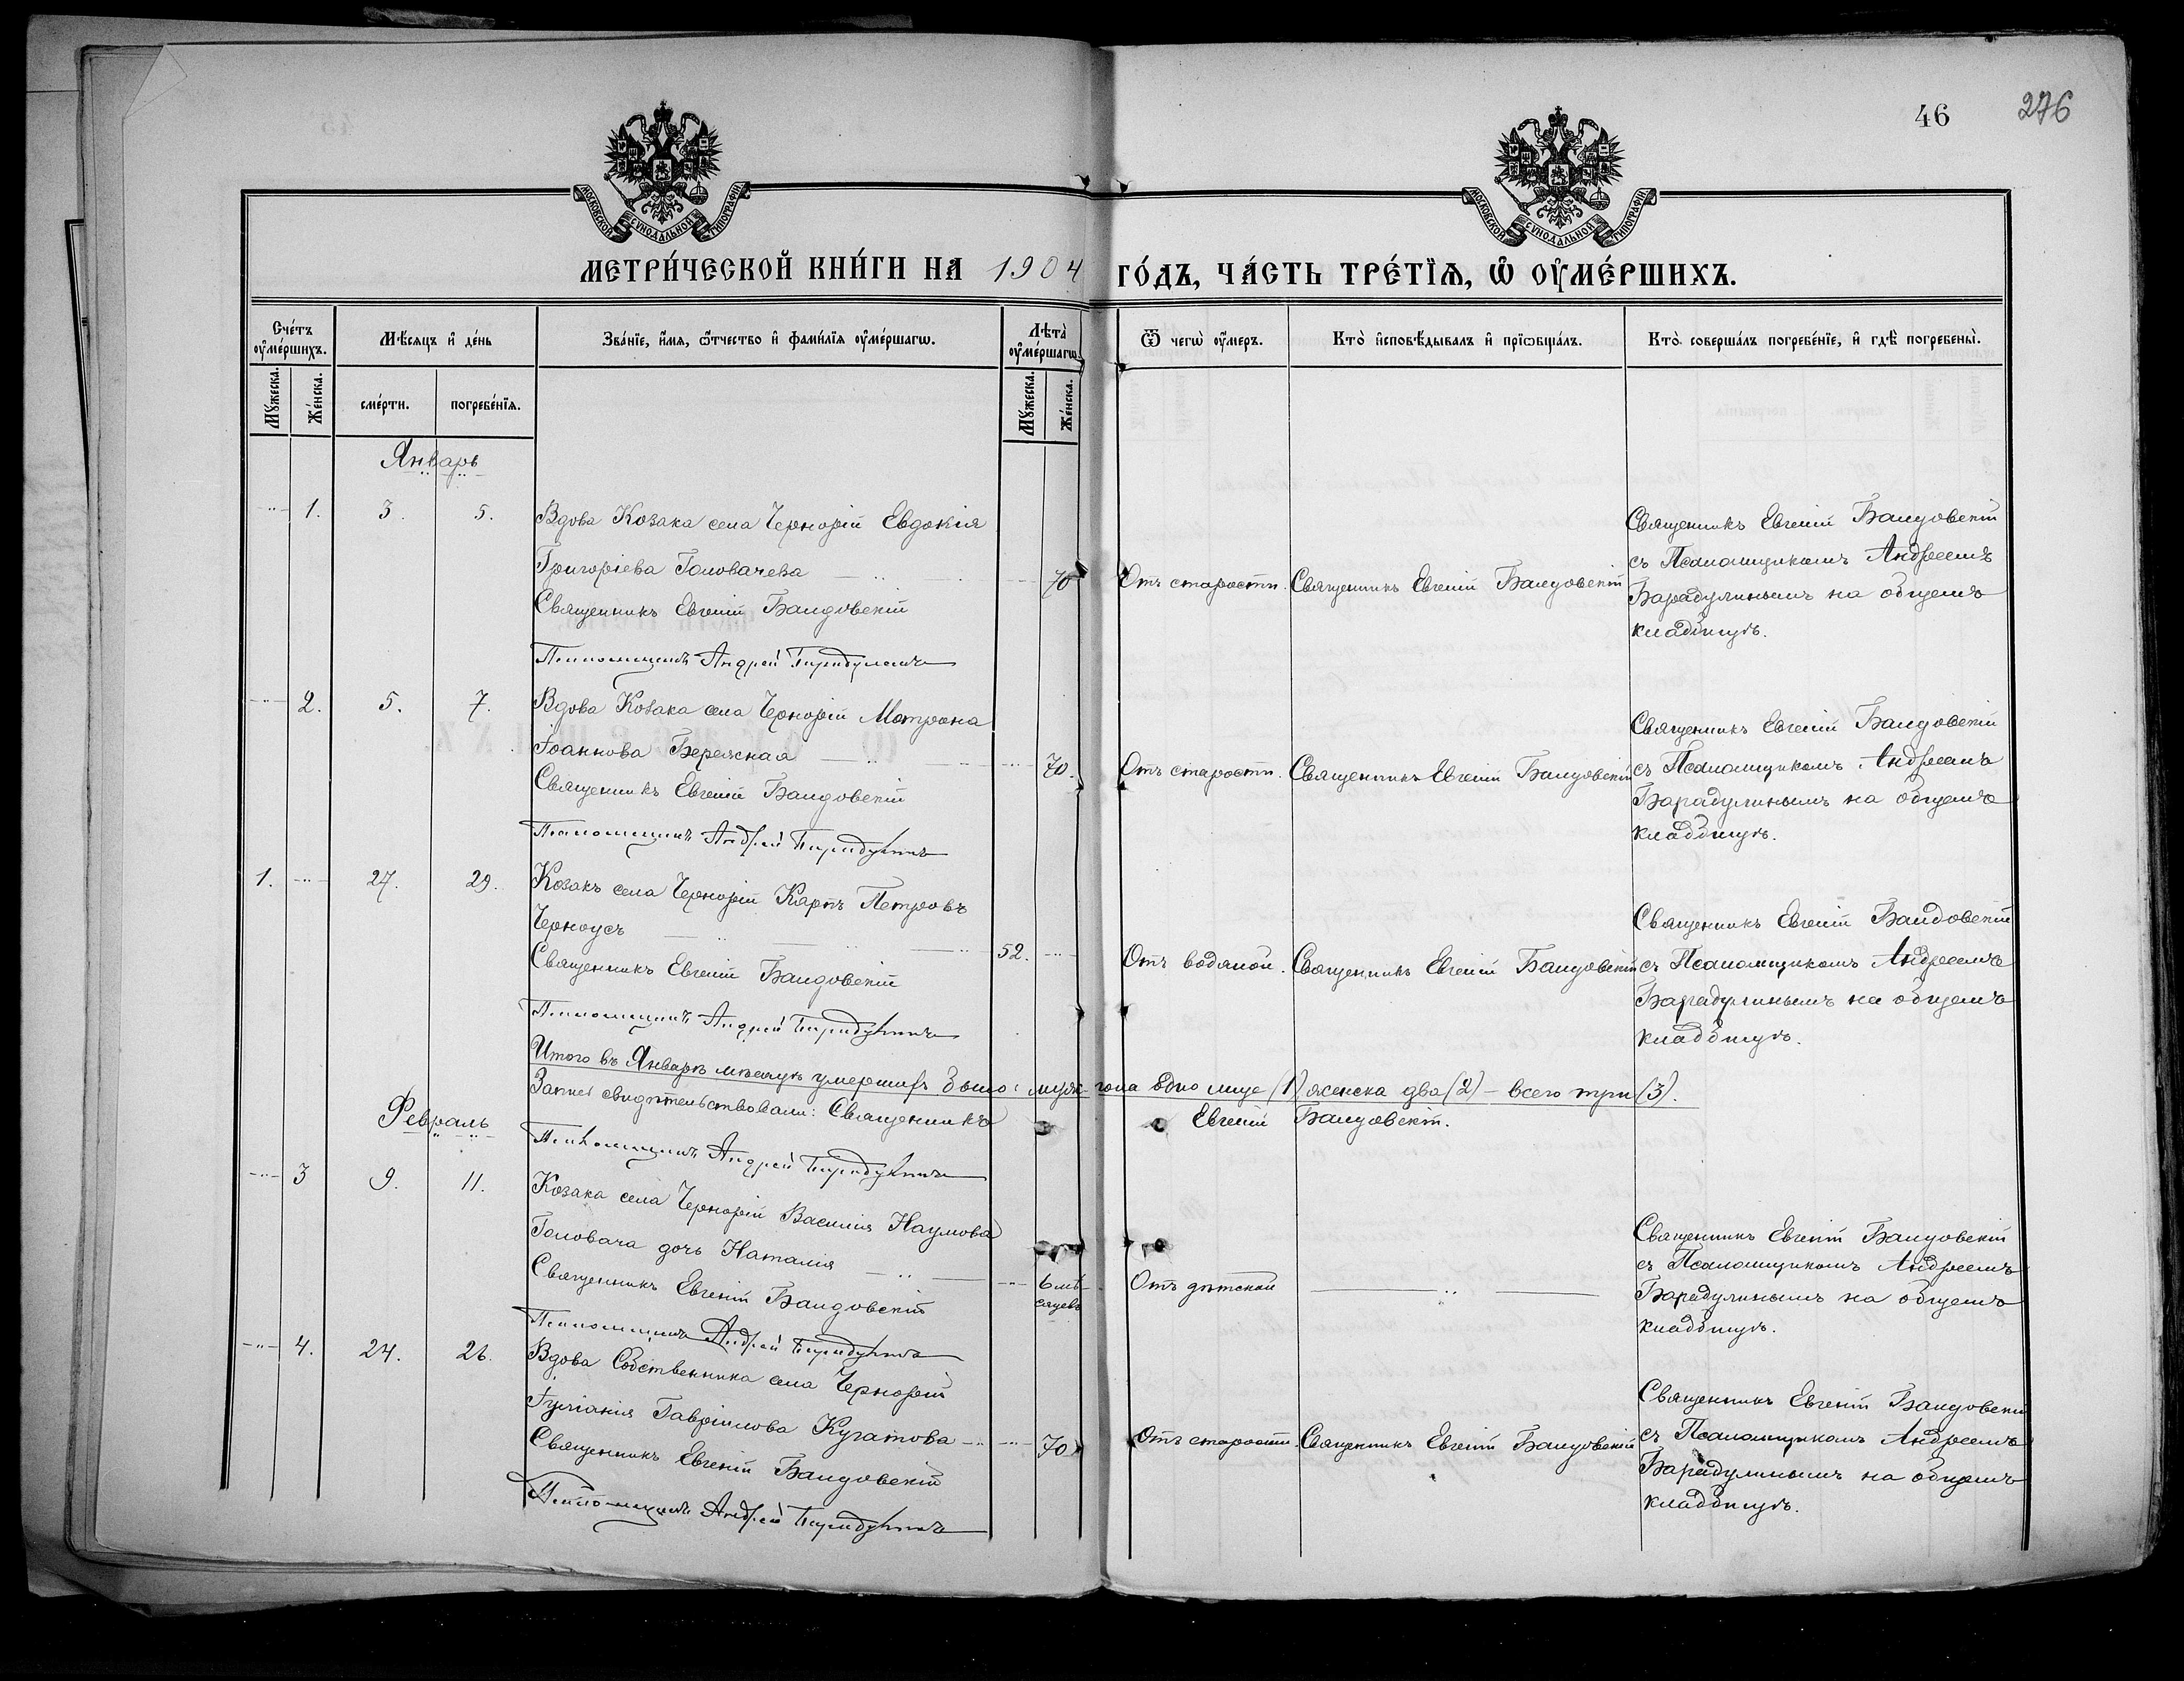 46
276
МОСКОВСКОЙ СУНОДАЛЬНОЙ ТИПОГРАФІИ.
МОСКОВСКОЙ СУНОДАЛЬНОЙ ТИПОГРАФІИ.
МЕТРИ́ЧЕСКОЙ КНИ́ГИ НА 1904 ГО́ДЪ, ЧА́СТЬ ТРЕ́ТІѦ, Ѽ ОУ҆МЕ́РШИХЪ.
Сче́тъ оу҆ме́ршихъ.
Мѣ́сяцъ и҆ де́нь
Зва́нїе, и҆́мѧ, ѻ҆́тчество и҆ фами́лїѧ оу҆ме́ршагѡ.
Лѣта̀ оу҆ме́ршагѡ.
Ѿ чегѡ̀ оу҆́меръ.
Кто̀ и҆сповѣ́дывалъ и҆ прїѡбща́лъ.
Кто̀ соверша́лъ погребе́нїе, и҆ гдѣ̀ погребены̀.
Мꙋ́жеска.
Же́нска.
сме́рти.
погребе́нїѧ.
Мꙋ́жеска.
Же́нска.
Январь
1. 3. 5. Вдова Козака села Чернорій Евдокія
Григоріева Головачева 70
Священникъ Евгеній Баидовскій
Псаломщикъ Андрей Барадулинъ
Отъ старости. Священникъ Евгеній Баидовскій
Священникъ Евгеній Баидовскій
съ Псаломщикомъ Андреемъ
Барадулинымъ на общемъ
кладбищѣ.
2. 5. 7. Вдова Козака села Чернорій Матрона
Іоаннова Бережная 70.
Священникъ Евгеній Баидовскій
Псаломщикъ Андрей Барадулинъ
Отъ старости. Священникъ Евгеній Баидовскій
Священникъ Евгеній Баидовскій
съ Псаломщикомъ Андреемъ
Барадулинымъ на общемъ
кладбищѣ.
1. 27. 29. Козакъ села Чернорій Карпъ Петровъ
Черноусъ 52.
Священникъ Евгеній Баидовскій
Псаломщикъ Андрей Барадулинъ
Отъ водяной. Священникъ Евгеній Баидовскій
Священникъ Евгеній Баидовскій
съ Псаломщикомъ Андреемъ
Барадулинымъ на общемъ
кладбищѣ.
Итого въ Январѣ мѣсяцѣ умершихъ было: муж- пола одно лице (1) женска два (2) – всего три (3).
Запись свидѣтельствовали: Священникъ Евгеній Баидовскій.
Псаломщикъ Андрей Барадулинъ
Февраль
3 9. 11. Козака села Чернорій Василія Наумова
Головача дочь Наталія 6 мѣ-
сяцевъ
Священникъ Евгеній Баидовскій
Псаломщикъ Андрей Барадулинъ
Отъ дѣтской
Священникъ Евгеній Баидовскій
съ Псаломщикомъ Андреемъ
Барадулинымъ на общемъ
кладбищѣ.
4. 24. 26. Вдова Собственника села Чернорій
Іуліанія Гавріилова 70
Священникъ Евгеній Баидовскій
Псаломщикъ Андрей Барадулинъ
Отъ старости. Священникъ Евгеній Баидовскій
Священникъ Евгеній Баидовскій
съ Псаломщикомъ Андреемъ
Барадулинымъ на общемъ
кладбищѣ.